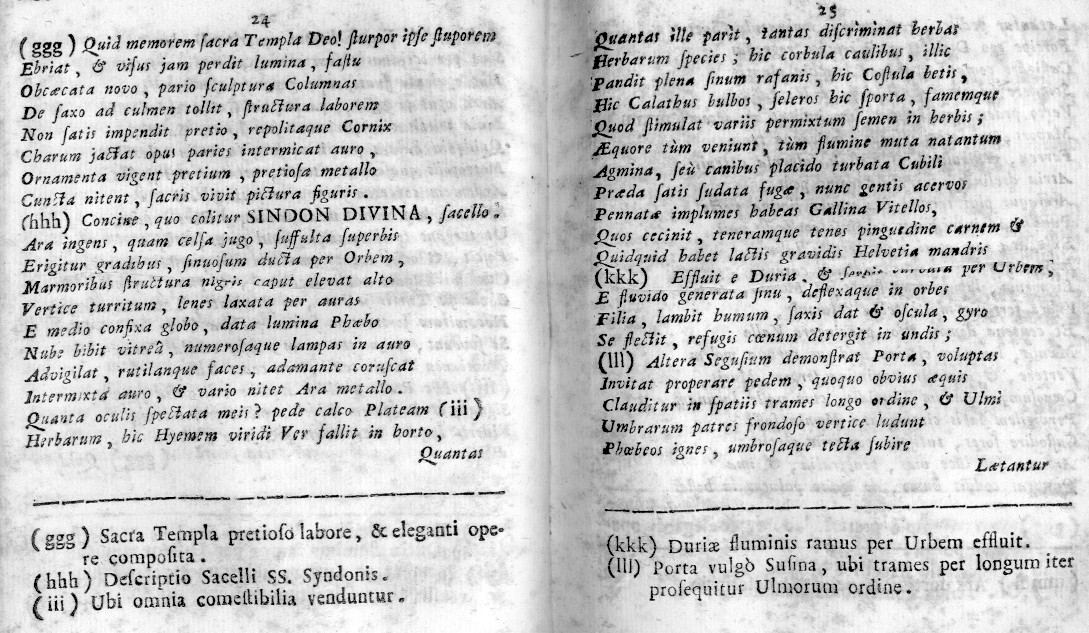 24
(ggg) Quid memorem ſacra Templa Deo! ſturpor ipſe ſtuporem
Ebriat, & viſus jam perdit lumina, faſtu
Obcæcata novo, pario ſculptura Columnas
De ſaxo ad culmen tollit, ſtructura laborem
Non ſatis impendit pretio, repolitaque Cornix
Charum jactat opus paries intermicat auro,
Ornamenta vigent pretium, pretioſa metallo
Cuncta nitent, ſacris vivit pictura figuris.
(hhh) Concine, quo colitur SINDON DIVINA, ſacello.
Ara ingens, quam celſa jugo, ſuffulta ſuperbis
Erigitur gradibus, ſinuoſum ducta per Orbem,
Marmoribus ſtructura nigris caput elevat alto
Vertice turritum, lenes laxata per auras
E medio confixa globo, data lumina Phæbo
Nube bibit vitreâ, numeroſaque lampas in auro
Advigilat, rutilanque faces, adamante coruſcat
Intermixta auro, & vario nitet Ara metallo.
Quanta oculis ſpectata meis? pede calco Plateam (iii)
Herbarum, hic Hyemem viridi Ver fallit in horto,
Quantas
(ggg) Sacra Templa pretioſo labore, & eleganti ope-
re compoſita.
(hhh) Deſcriptio Sacelli SS. Syndonis.
(iii) Ubi omnia comeſtibilia venduntur.
25
Quantas ille parit, tantas diſcriminat herbas
Herbarum ſpecies; hic corbula caulibus, illic
Pandit plena ſinum rafanis, hic Coſtula betis,
Hic Calathus bulbos, ſeleros hic ſporta, famemque
Quod ſtimulat variis permixtum ſemen in herbis;
Æquore tùm veniunt, tùm flumine muta natantum
Agmina, ſeù canibus placido turbata Cubili
Præda ſatis ſudata fugæ, nunc gentis acervos
Pennatæ implumes habeas Gallina Vitellos,
Quos cecinit, teneramque tenes pinguedine carnem &
Quidquid habet lactis gravidis Helvetia mandris
(kkk) Effluit e Duria, & per Urbem,
E fluvido generata ſinu, deflexaque in orbes
Filia, lambit humum, ſaxis dat & oſcula, gyro
Se flectit, refugis cœnum detergit in undis;
(lll) Altera Seguſium demonſtrat Porta, voluptas
Invitat properare pedem, quoquo obvius æquis
Clauditur in ſpatiis trames longo ordine, & Ulmi
Umbrarum patres frondoſo vertice ludunt
Phœbeos ignes, umbroſaque tecta ſubire
Lætantur
(kkk) Duriæ fluminis ramus per Urbem effluit.
(lll) Porta vulgò Suſina, ubi trames per longum iter
proſequitur Ulmorum ordine.